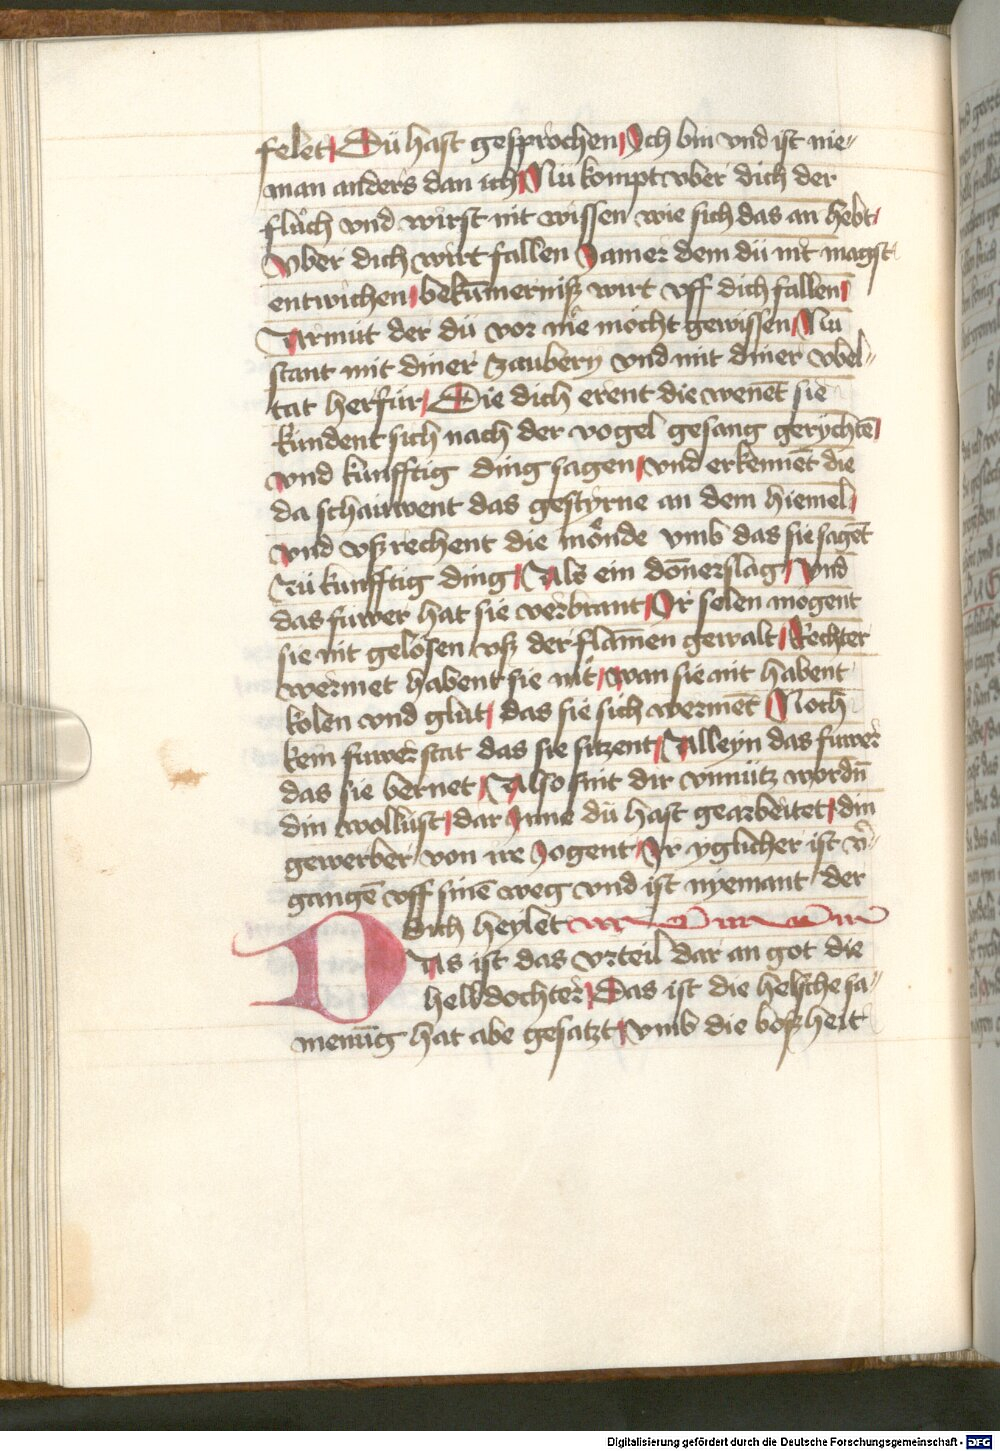 felet Dü hast gesprochen Ich bin vnd ist nie-
man anders dan ich Nü kompt vber dich der
flüch vnd wirst nit wissen wie sich das an hebt
Vber dich wirt fallen Jamer dem dü nit magst
entwichen bekūmerniß wirt vff dich fallen
Armüt der dü vor nie möcht gewissen Nü
stant mit diner zaubery vnd mit diner vbel-
tat herfür Die dich erent die wenēt sie
kündent sich nach der vogel gesang gerychtē
vnd künfftig ding sagen vnd erkennēt die
da schauwent das gestyrne an dem hiemel
vnd vßrechent die mönde vmb das sie sagēt
Zü kunfftig ding Als ein dōnerslag Vnd
das fuwer hat sie verbrant Ir selen mögent
sie nit gelösen vß der flāmen gewalt Rechter
wermet habent sie nit wan sie nit habent
kolen vnd glüt das sie sich wermēt Noch
kein fuwer stat das sie sitzent Alleyn das fuwer
das sie bernet Also sint dir vnnütz wordn̄
din wollüst dar Inne dü hast gearbeitet din
gewerber von ire Jogent Ir yglicher ist v̄-
gangē vff sinē weg vnd ist nyemant der
dich heylet
Das ist das vrteil dar an got die
hell dochter Das ist die helsche sa-
menūg hat abe gesatzt vmb die boßheit
Digitalisierung gefördert durch die Deutsche Forschungsgemeinschaft - DFG